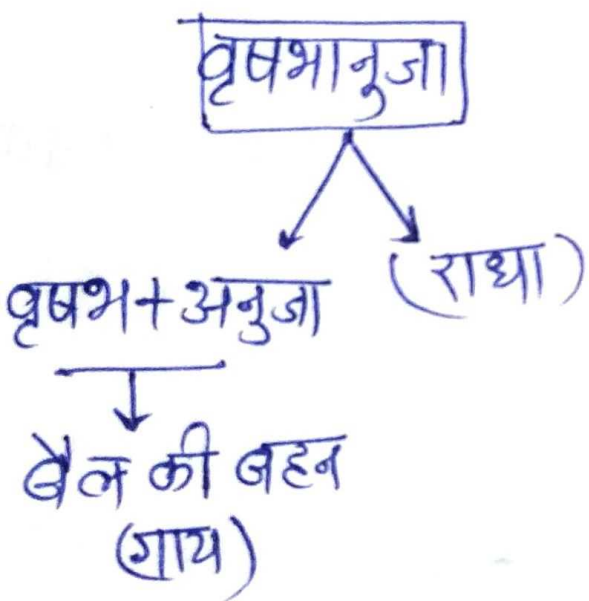 वृषभानुजा
वृषभ+अनुजा (राधा)
बैल की बहन
(गाय)